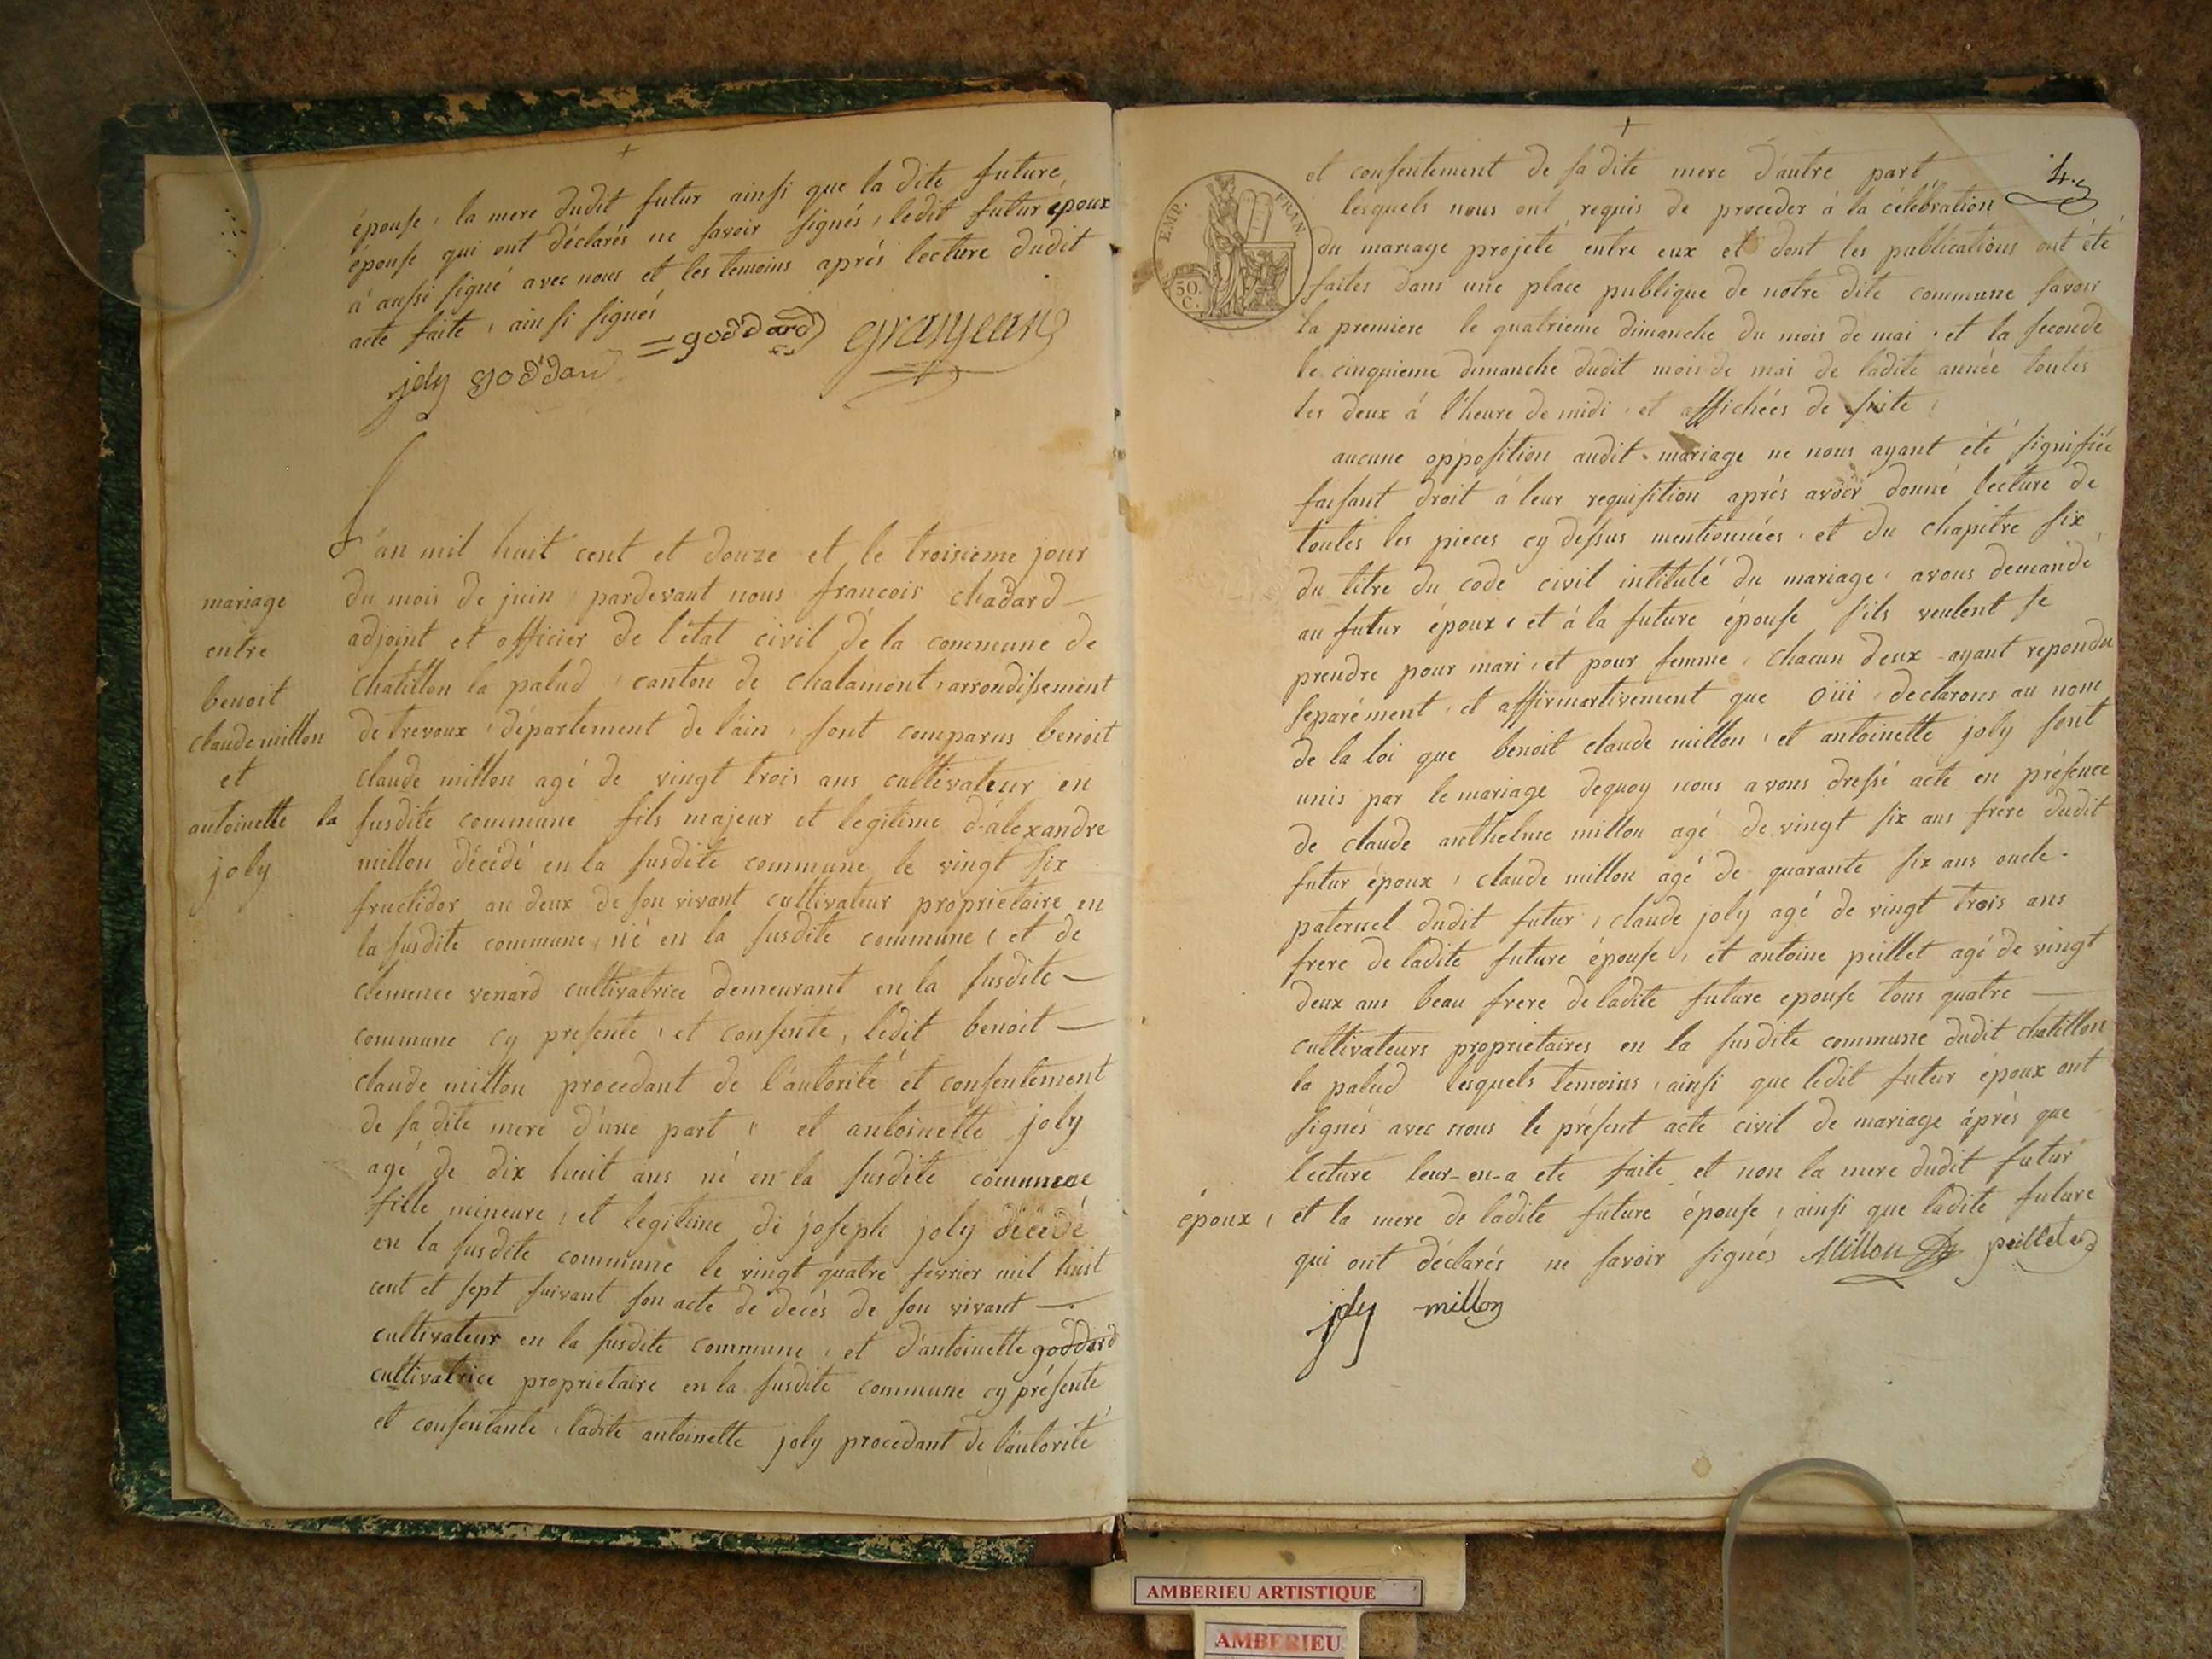 épouse, la mere dudit futur ainsi que la dite future
épouse qui ont déclarés ne savoir signés, ledit futur époux
à aussi signé avec nous et les temoins aprés lecture dudit
acte faite, ainsi signés
joly goddard = goddard granjean
mariage
entre
benoit
claude millon
et
antoinette
joly
L'an mil huit cent et douze et le troisieme jour
du mois de juin, pardevant nous francois chadard
adjoint et officier de l'état civil de la commune de
chatillon la palud, canton de chalamont, arrondissement
de trevoux, département de l'ain, sont comparus benoit
claude millon agé de vingt trois ans cultivateur en
la susdite commune fils majeur et legitime d'alexandre
millon décédé en la susdite commune le vingt six
fructidor an deux de son vivant cultivateur proprietaire en
la susdite commune, né en la susdite commune, et de
clemence venard cultivatrice demeurant en la susdite
commune cy presente, et consente, ledit benoit
claude millon procedant de l'autorité et consentement
de sa dite mere d'une part, et antoinette joly
agé de dix huit ans né en la susdite commune
fille mineure, et legitime de joseph joly décédé
en la susdite commune le vingt quatre fevrier mil huit
cent et sept suivant son acte de decés de son vivant
cultivateur en la susdite commune, et d'antoinette goddard
cultivatrice proprietaire en la susdite commune cy présente
et consentante, ladite antoinette joly procedant de l'autorité
4.
EMP. FRAN.
50.
C.
et consentement de sa dite mere d'autre part
lesquels nous ont requis de proceder à la célébration
du mariage projeté entre eux et dont les publications ont été
faites dans une place publique de notre dite commune savoir
la premiere le quatrieme dimanche du mois de mai, et la seconde
le cinquieme dimanche dudit mois de mai de ladite année toutes
les deux à l'heure de midi, et affichées de suite,
aucune opposition audit mariage ne nous ayant été signifiée
faisant droit à leur requisition aprés avoir donné lecture de
toutes les pieces cy dessus mentionnées, et du chapitre six
du titre du code civil intitulé du mariage, avons demandé
au futur époux, et à la future épouse s'ils veulent se
prendre pour mari, et pour femme, chacun deux ayant repondu
separément, et affirmartivement que oüi, declarons au nom
de la loi que benoit claude millon, et antoinette joly sont
unis par le mariage dequoy nous avons dressé acte en présence
de claude anthelme millon agé de vingt six ans frere dudit
futur époux, claude millon agé de quarante six ans oncle
paternel dudit futur, claude joly agé de vingt trois ans
frere de ladite future épouse, et antoine peillet agé de vingt
deux ans beau frere de ladite future epouse tous quatre
cultivateurs proprietaires en la susdite commune dudit chatillon
la palud lesquels temoins, ainsi que ledit futur époux ont
signés avec nous le présent acte civil de mariage aprés que
lecture leur-en-a ete faite et non la mere dudit futur
époux, et la mere de ladite future épouse, ainsi que ladite future
qui ont déclarés ne savoir signés Millon peillet
joly millon
AMBERIEU ARTISTIQUE
AMBERIEU